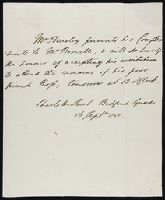 Mr Brively presents his Compli-
ments to Mr Brivell, & will do himself
the honour of accepting his invitation
to attend the remains of his poor
friend Ross, tomorrow at 12 o'clock.
Charlotte Street Bedford Square
16 Septr